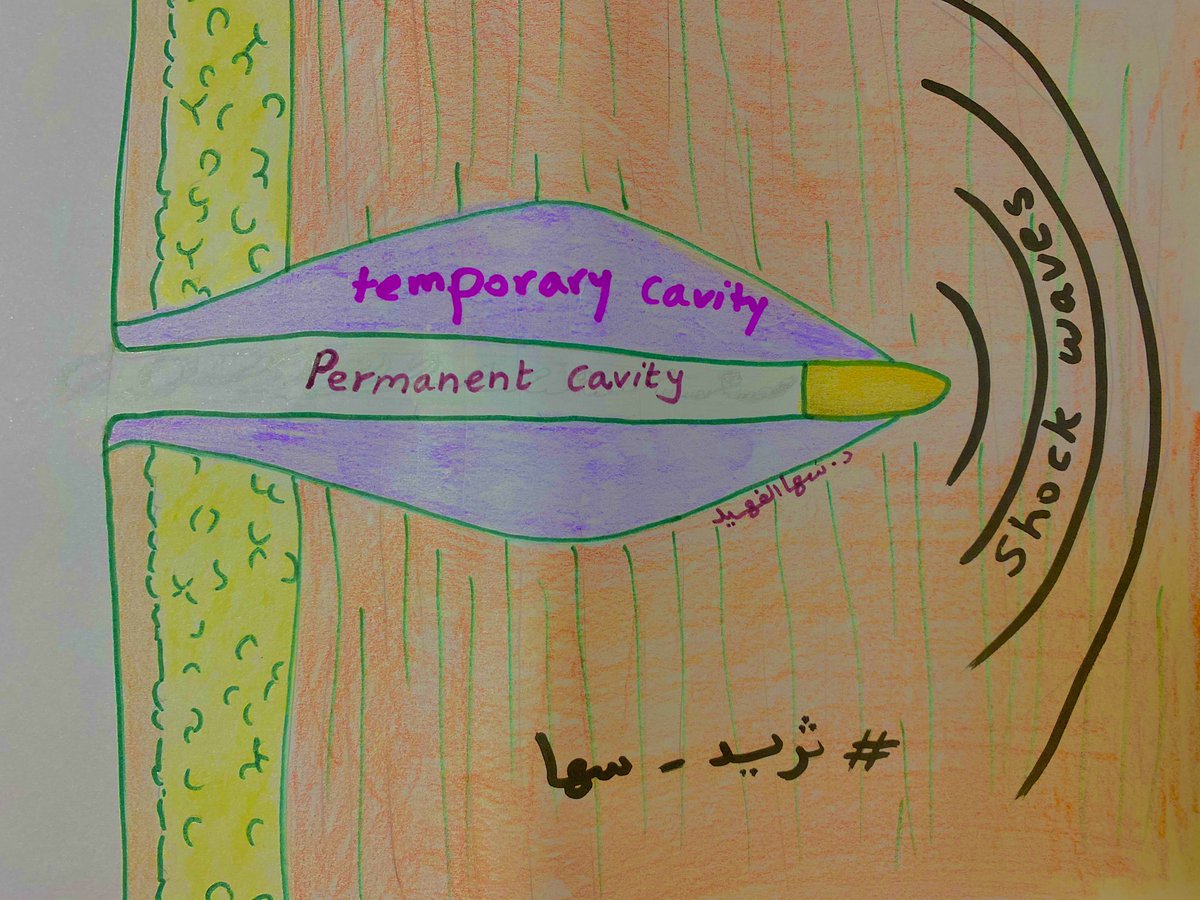 temporary cavity
Permanent cavity
Shock waves
د. سها الفهيد
# ثريد - سها